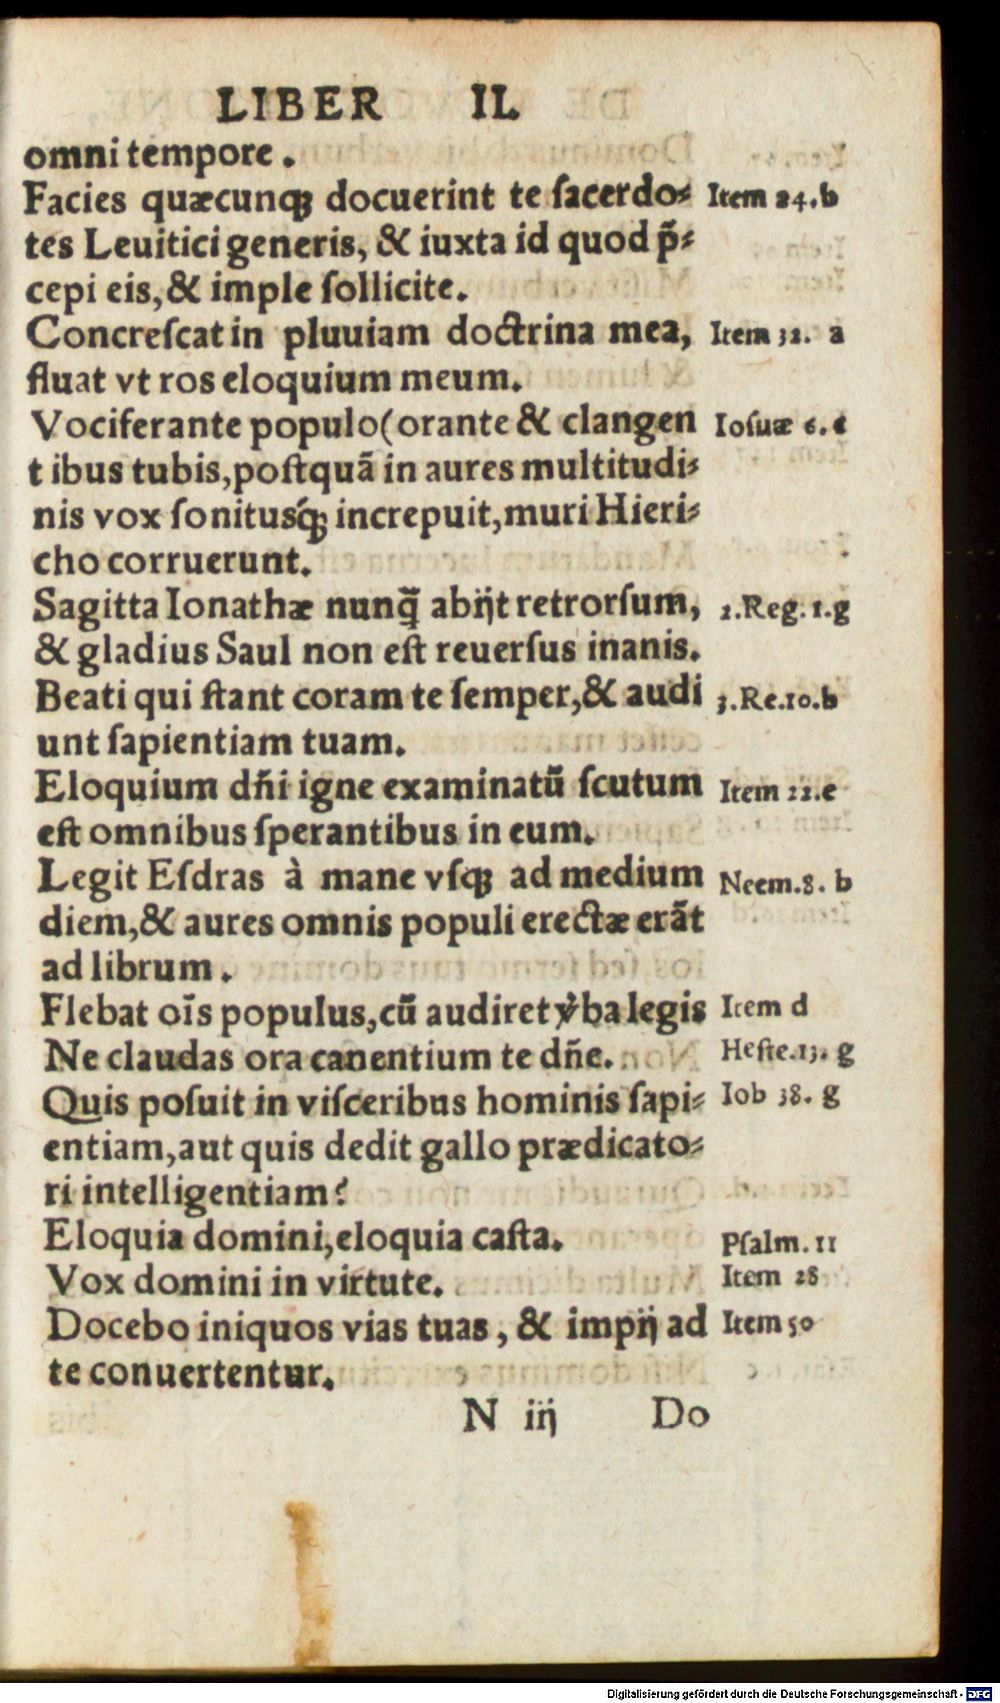 LIBER II.
omni tempore.
Facies quæcunqꝫ docuerint te ſacerdo⸗ Item 24.b
tes Leuitici generis, & iuxta id quod p̄⸗
cepi eis, & imple ſollicite.
Concreſcat in pluuiam doctrina mea, Item 32. a
fluat vt ros eloquium meum.
Vociferante populo (orante & clangen Ioſuæ 6. e
t ibus tubis, poſtquā in aures multitudi⸗
nis vox ſonitusq́ꝫ increpuit, muri Hieri⸗
cho corruerunt.
Sagitta Ionathæ nunq̄ abijt retrorſum, 2.Reg.1.g
& gladius Saul non eſt reuerſus inanis.
Beati qui ſtant coram te ſemper, & audi 3.Re.10.b
unt ſapientiam tuam.
Eloquium dn̄i igne examinatū ſcutum Item 22.e
eſt omnibus ſperantibus in eum.
Legit Eſdras à mane vſqꝫ ad medium Neem.8. b
diem, & aures omnis populi erectæ erāt
ad librum.
Flebat oīs populus, cū audiret v̓ba legis Item d
Ne claudas ora canentium te dn̄e. Heſte.13. g
Quis poſuit in viſceribus hominis ſapi⸗ Iob 38. g
entiam, aut quis dedit gallo prædicato⸗
ri intelligentiam?
Eloquia domini, eloquia caſta. Pſalm. 11
Vox domini in virtute. Item 28
Docebo iniquos vias tuas, & impij ad Item 50
te conuertentur.
N iij Do
Digitalisierung gefördert durch die Deutsche Forschungsgemeinschaft - DFG